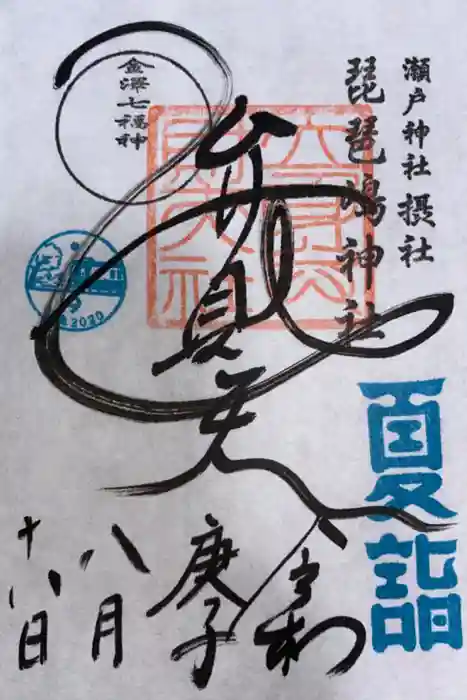 瀬戸神社 摂社
琵琶嶋神社
金澤七福神
辨財天
夏詣
令和
庚子
八月
十八日
2020